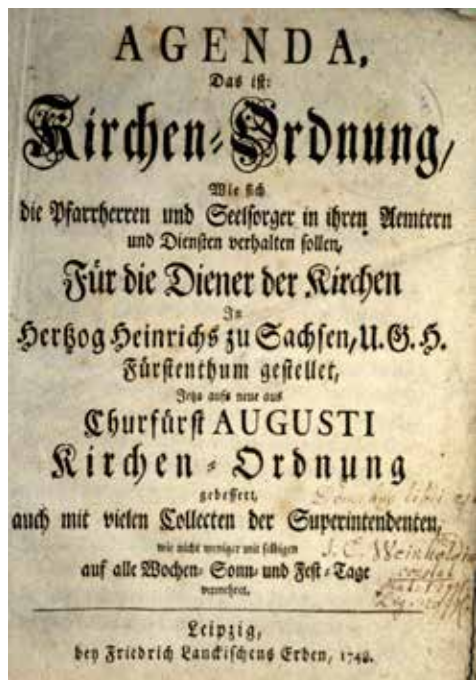 AGENDA,
Das ist:
Kirchen-Ordnung,
Wie sich
die Pfarrherren und Seelsorger in ihren Aemtern
und Diensten verhalten sollen,
Für die Diener der Kirchen
In
Hertzog Heinrichs zu Sachsen, U. G. H.
Fürstenthum gestellet,
Jetzo aufs neue aus
Churfürst AUGUSTI
Kirchen-Ordnung
gebessert,
auch mit vielen Collecten der Superintendenten,
wie nicht weniger mit selbigen
auf alle Wochen- Sonn- und Fest-Tage
vermehret.
J. C. Weinhold
Leipzig,
bey Friedrich Lanckischens Erben, 1748.